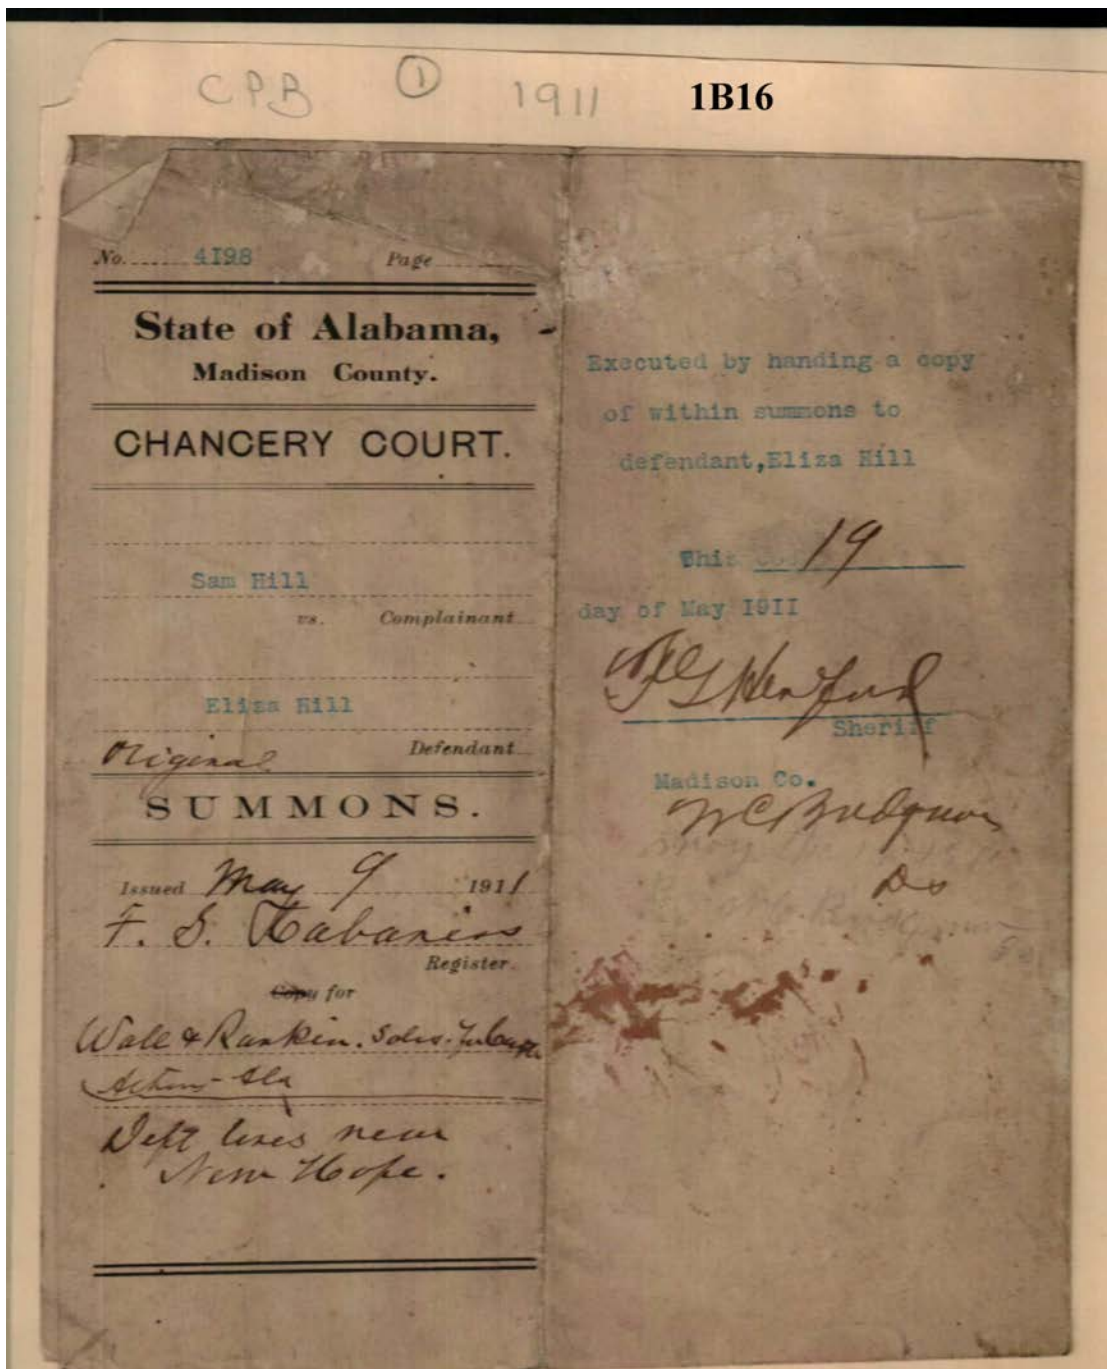 CPB 1 1911 1B16
No. 4198 Page
State of Alabama,
Madison County.
CHANCERY COURT.
Sam Hill
vs. Complainant
Eliza Hill
Original Defendant
SUMMONS.
Issued May 9 1911
F. S.
Register.
Copy for
Wall & Rankin. Sols. for
Deft lives near
New Hope.
Executed by handing a copy
of within summons to
defendant,Eliza Hill
This 19
day of May I9II
Sheriff
Madison Co.
DS